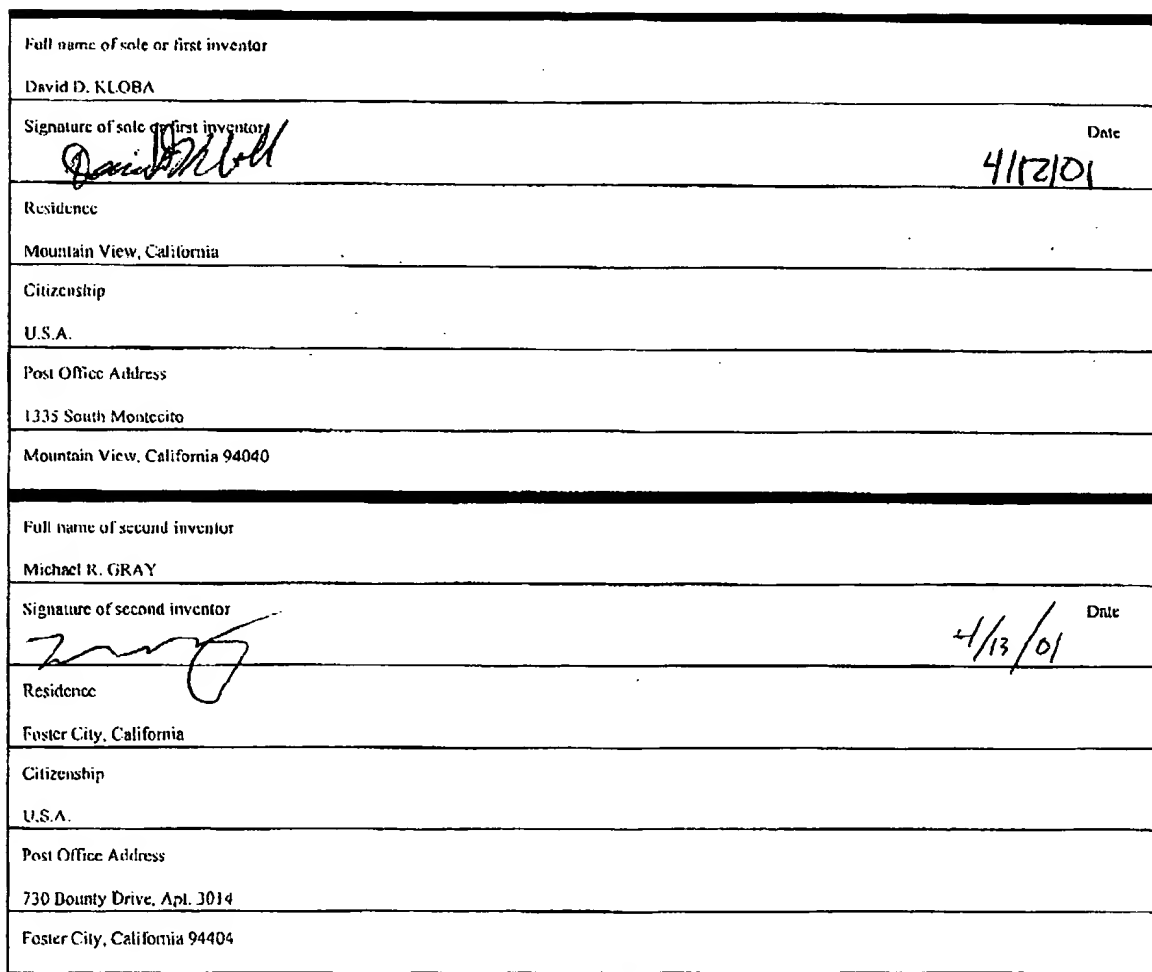 Full name of sole or first inventor
David D. KLOBA
Signature of sole or first inventor
Date
4/12/01
Residence
Mountain View, California
Citizenship
U.S.A.
Post Office Address
1335 South Montecito
Mountain View, California 94040
Full name of second inventor
Michael R. GRAY
Signature of second inventor
Date
4/13/01
Residence
Foster City, California
Citizenship
U.S.A.
Post Office Address
730 Bounty Drive, Apt. 3014
Foster City, California 94404